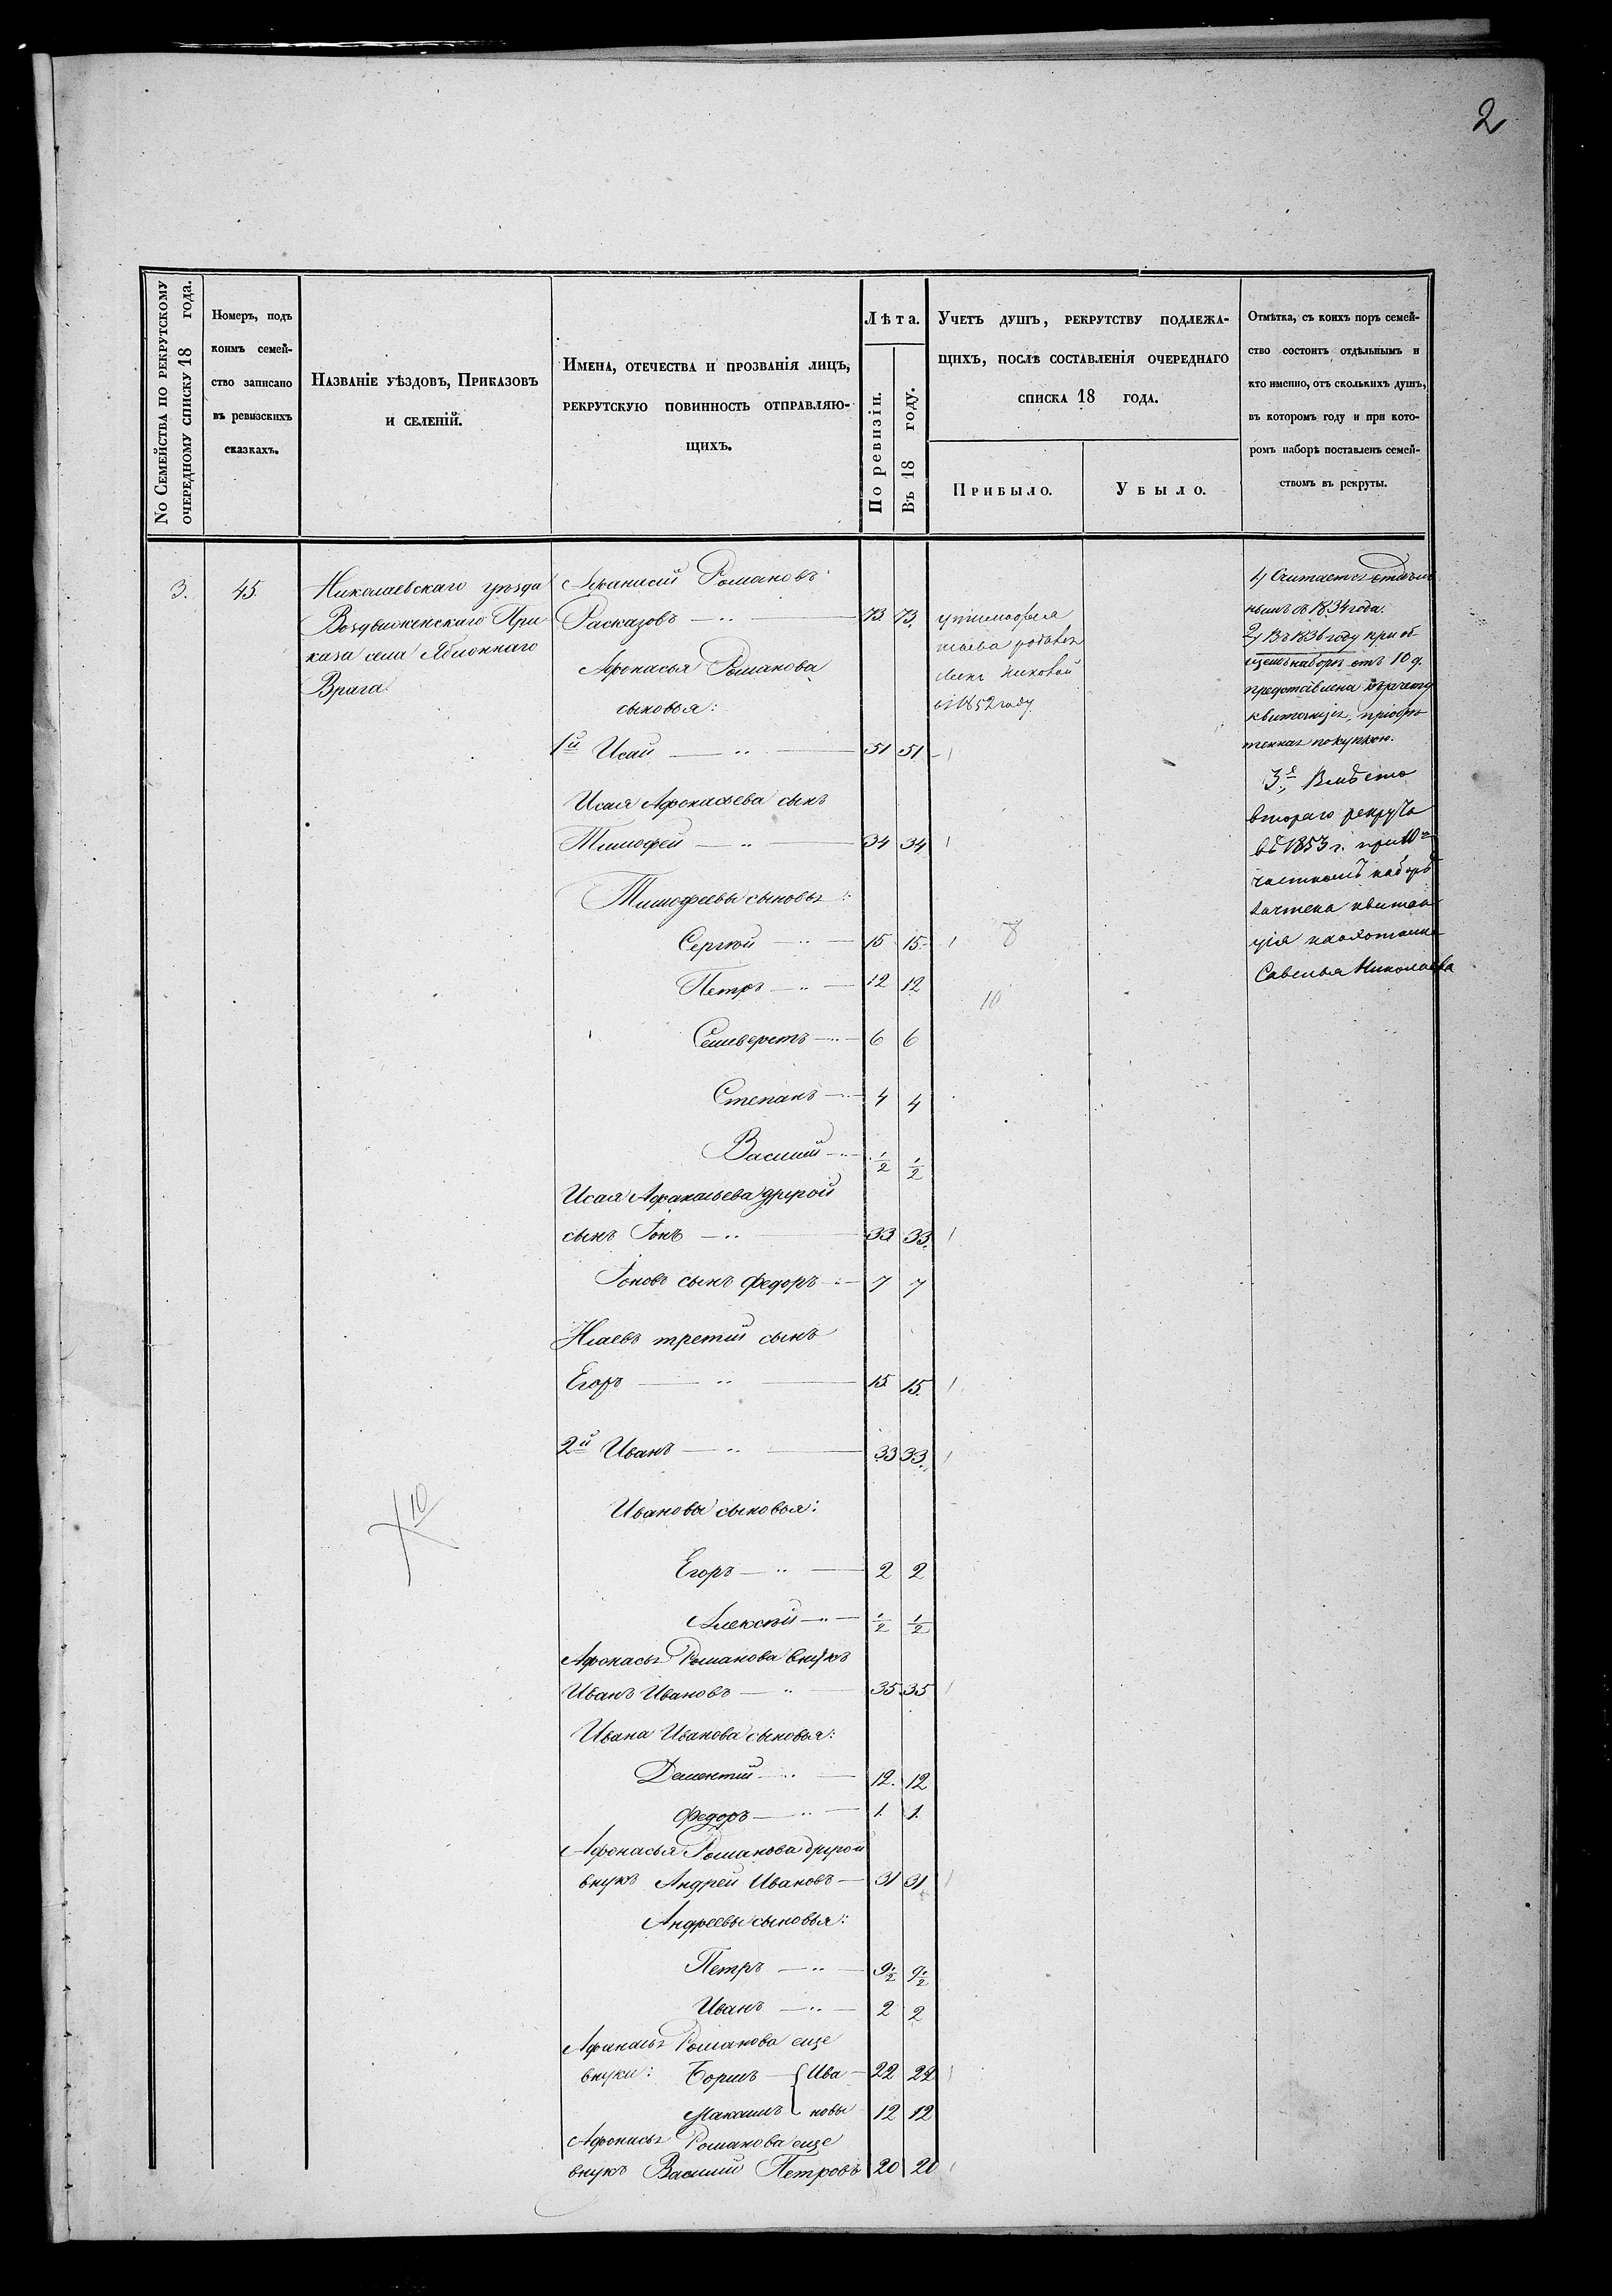 2
No Семейства по рекрутскому
очередному списку 18 года.
Номеръ, подъ
коимъ семей-
ство записано
въ ревизскихъ
сказкахъ.
Названіе уѣздовъ, Приказовъ
и селеній.
Имена, отечества и прозванія лицъ,
рекрутскую повинность отправляю-
щихъ.
Лѣта.
По ревизіи.
Въ 18 году.
Учетъ душъ, рекрутству подлежа-
щихъ, послѣ составленія очереднаго
списка 18 года.
Прибыло.
Убыло.
Отмѣтка, съ коихъ поръ семей-
ство состоитъ отдѣльнымъ и
кто именно, отъ сколькихъ душъ,
въ которомъ году и при кото-
ромъ наборѣ поставленъ семей-
ствомъ въ рекруты.
3.
45.
Николаевскаго уѣзда
Воздвиженскаго При
каза села Яблоннаго
Врага.
Афанасій Романовъ
Расказовъ — " — 73 73.
Афонасья Романова
сыновья:
1й Исай — " — 51 51
Исая Афонасьева сынъ
Тимофей — " — 34 34
Тимофеевы сыновья:
Сергѣй — " — 15 15
Петръ — " — 12 12
Селиверстъ — " — 6 6
Степанъ — " — 4 4
Василий — " — 1/2 1/2
Исая Афанасьева другой
сынъ Іонъ — " — 33 33.
Іоновъ сынъ Федоръ — " — 7 7
Исаевъ третий сынъ
Егоръ — " — 15 15.
2й Иванъ — " — 33 33.
Ивановы сыновья:
Егоръ — " — 2 2
Алексѣй — " — 1/2 1/2
Афонасья Романова внукъ
Иванъ Ивановъ — " — 35 35
Ивана Иванова сыновья:
Дементий — " — 12. 12
Федоръ — " — 1. 1.
Афонасья Романова другой
внукъ Андрей Ивановъ — 31 31
Андреевы сыновья:
Петръ — " — 9 1/2 9 1/2
Иванъ — " — 2 2
Афанасья Романова еще
внуки: Борисъ — { Ива — 22 22
Максимъ { новы 12 12
Афонасья Романова еще
внукъ Василий Петровъ 20 20
у тимофея
родився
въ 1852 году
8
10
10
1) Считается отдѣль
нымъ съ 1834 года.
2) Въ 1836 году при об
щемъ наборѣ отъ 10 д.
представлена зачетная
квитанція, пріобрѣ
тенная покупкою.
3е, Вмѣсто
втораго рекрута
въ 1853 г. при 10м
частномъ наборѣ
зачтена квитан
ція
Савелья Николаева